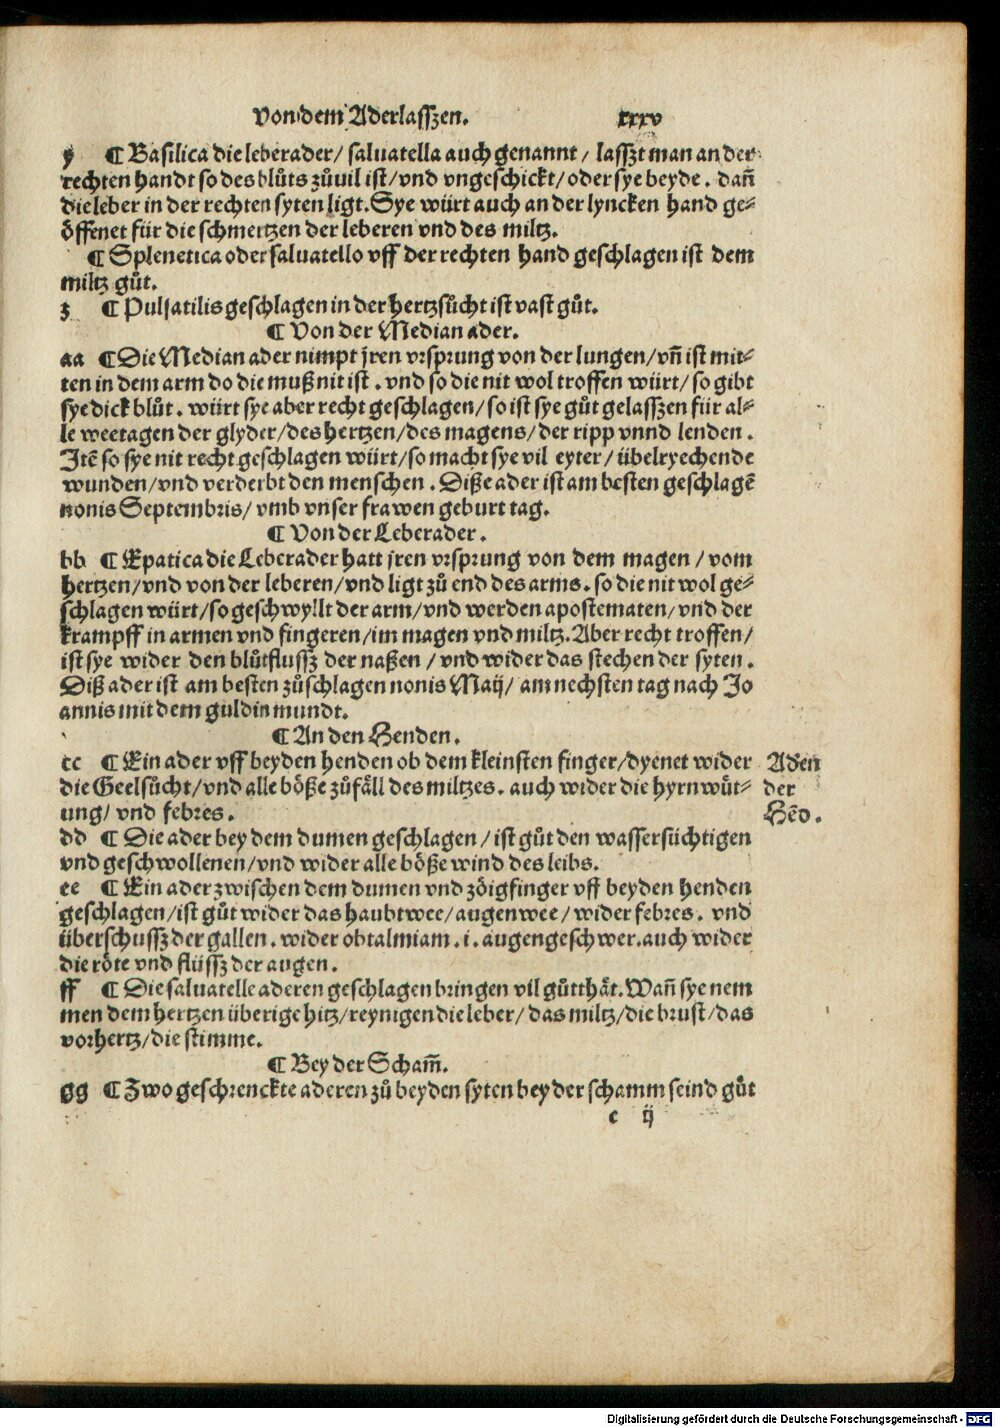 Von dem Aderlasszen. xxxv
y ¶ Basilica die leberader / saluatella auch genannt / lasszt man an der
rechten handt so des blůts zůuil ist / vnd vngeschickt / oder sye beyde . dañ
die leber in der rechten syten ligt. Sye würt auch an der lyncken hand ge⸗
öffenet für die schmertzen der leberen vnd des miltz.
¶ Splenetica oder saluatello vff der rechten hand geschlagen ist dem
miltz gůt.
z ¶ Pulsatilis geschlagen in der hertzsücht ist vast gůt.
¶ Von der Median ader.
aa ¶ Die Median ader nimpt jren vrsprung von der lungen / vñ ist mit⸗
ten in dem arm do die muß nit ist . vnd so die nit wol troffen würt / so gibt
sye dick blůt . würt sye aber recht geschlagen / so ist sye gůt gelasszen für al⸗
le weetagen der glyder / des hertzen / des magens / der ripp vnnd lenden .
Itē so sye nit recht geschlagen würt / so macht sye vil eyter / übelryechende
wunden / vnd verderbt den menschen . Diße ader ist am besten geschlagē
nonis Septembris / vmb vnser frawen geburt tag.
¶ Von der Leberader .
bb ¶ Epatica die Leberader hatt jren vrsprung von dem magen / vom
hertzen / vnd von der leberen / vnd ligt zů end des arms . so die nit wol ge⸗
schlagen würt / so geschwyllt der arm / vnd werden apostematen / vnd der
krampff in armen vnd fingeren / im magen vnd miltz. Aber recht troffen /
ist sye wider den blůtflussz der naßen / vnd wider das stechen der syten .
Diß ader ist am besten zůschlagen nonis Maij / am nechsten tag nach Jo
annis mit dem guldin mundt.
¶ An den Henden .
cc ¶ Ein ader vff beyden henden ob dem kleinsten finger / dyenet wider
die Geelsücht / vnd alle böße zůfäll des miltzes . auch wider die hyrnwüt⸗
ung / vnd febres .
Adern
der
Hēd .
dd ¶ Die ader bey dem dumen geschlagen / ist gůt den wassersüchtigen
vnd geschwollenen / vnd wider alle böße wind des leibs.
ee ¶ Ein ader zwischen dem dumen vnd zöigfinger vff beyden henden
geschlagen / ist gůt wider das haubtwee / augenwee / wider febres . vnd
überschussz der gallen . wider obtalmiam . i . augengeschwer. auch wider
die röte vnd flüssz der augen .
ff ¶ Die saluatelle aderen geschlagen bringen vil gůtthåt. Wañ sye nem
men dem hertzen überige hitz / reynigen die leber / das miltz / die brust / das
vorhertz / die stimme.
¶ Bey der Scham̄.
gg ¶ Zwo geschrenckte aderen zů beyden syten bey der schamm seind gůt
e ij
Digitalisierung gefördert durch die Deutsche Forschungsgemeinschaft - DFG